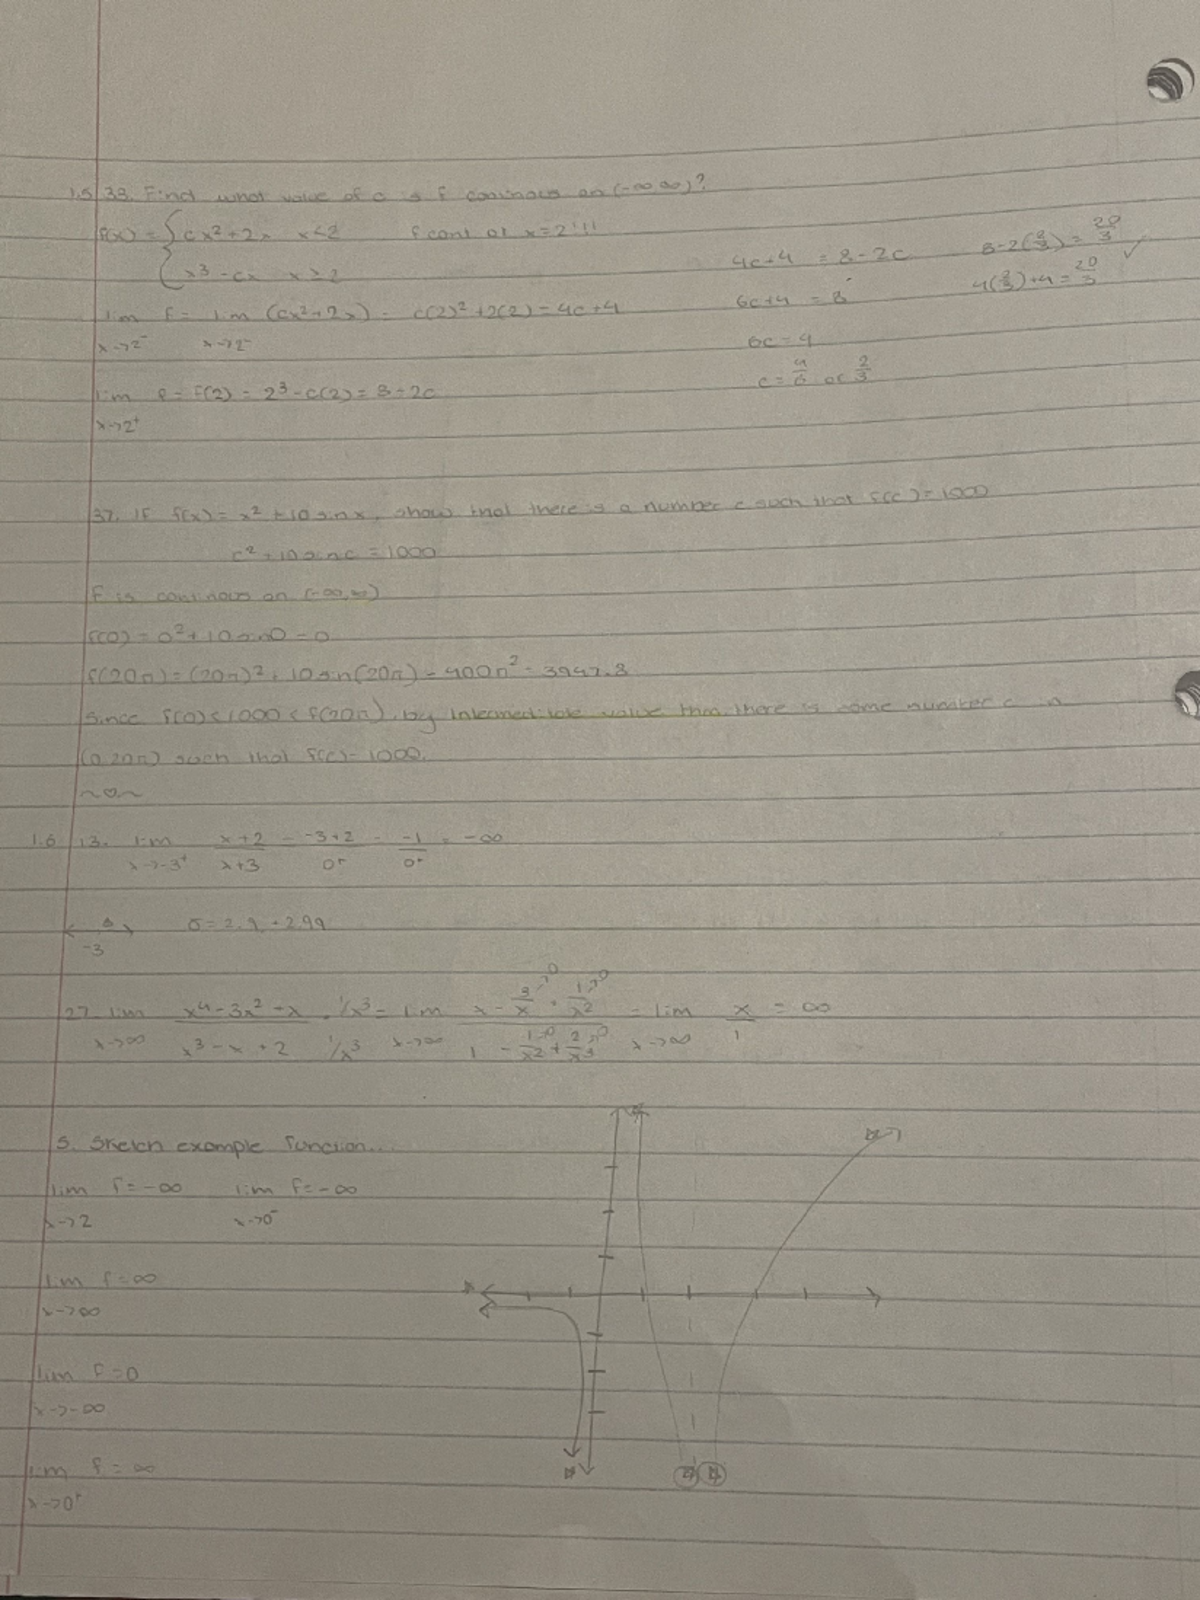 1.5 33. Find what value of c is f coninous on (-∞ ∞)?
f(x) = { cx² + 2x x < 2 f cont at x = 2!!!
x³ - cx x ≥ 2
lim f = lim (cx² + 2x) = c(2)² + 2(2) = 4c + 4
x→2⁻ x→2⁻
lim f = f(2) = 2³ - c(2) = 8 - 2c
x→2⁺
4c + 4 = 8 - 2c
6c + 4 = 8
6c = 4
c = 4/6 or 2/3
8 - 2(2/3) = 20/3
4(2/3) + 4 = 20/3 ✓
37. If f(x) = x² + 10 sin x, show that there is a number c such that f(c) = 1000
c² + 10 sin c = 1000
f is coninous on (-∞, ∞)
f(0) = 0² + 10 sin 0 = 0
f(20π) = (20π)² + 10 sin(20π) = 400π² = 3947.8
Since f(0) < 1000 < f(20π), by value thm, there is some number c in
(0, 20π) such that f(c) = 1000.
1.6 13. lim x+2/x+3 = -3+2/0⁺ = -1/0⁺ = -∞
x→-3⁺
-3 = 2.9, -2.99
27. lim x⁴ - 3x² + x/x³ - x + 2 · 1/x³/1/x³ = lim x - 3/x→0 + 1/x²→0/1 - 1/x²→0 + 2/x³→0 = lim x/1 = ∞
x→∞ x→∞ x→∞
5. Sketch example function...
lim f = -∞ lim f = -∞
x→2 x→0⁻
lim f = ∞
x→∞
lim f = 0
x→-∞
lim f = ∞
x→0⁺